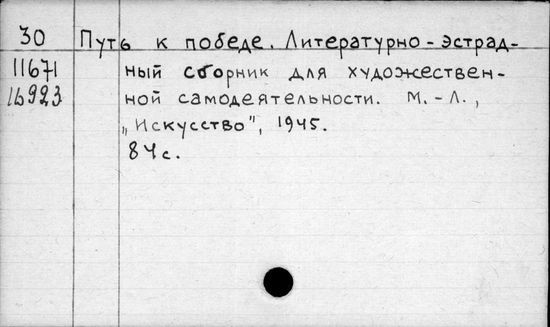 30 Путь к победе. Литературно-эстрад-
11671 ный сборник для художествен-
16923 ной самодеятельности. М.-Л.,
„Искусство", 1945.
84с.